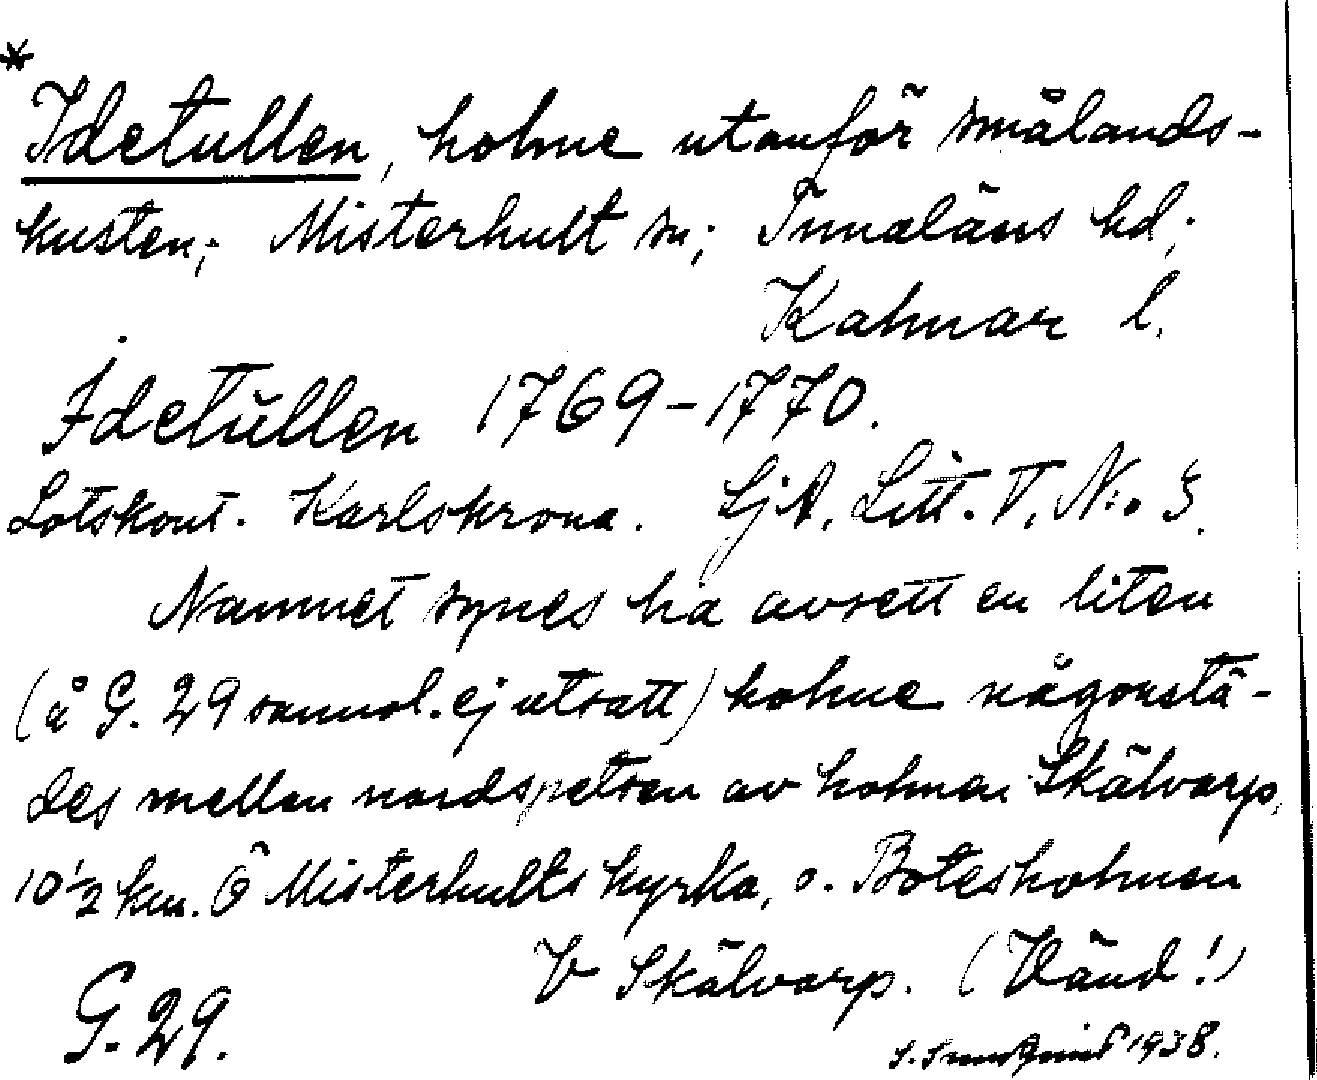 *
Idetullen, holme utanför smålands-
kusten; Misterhult sn; Tunaläns hd;
Kalmar l.
Idetullen 1769-1770.
Lotskont. Karlskrona. SjA. Litt. T, N:o 3.
Namnet synes ha avsett en liten
(å G. 29 sannol. ej utsatt) holme någonstä-
des mellan nordspetsen av holmen Skälvarp,
10 1/2 km. Ö Misterhults kyrka, o. Botesholmen
V Skälvarp. (Vänd!)
G. 29.
1938.